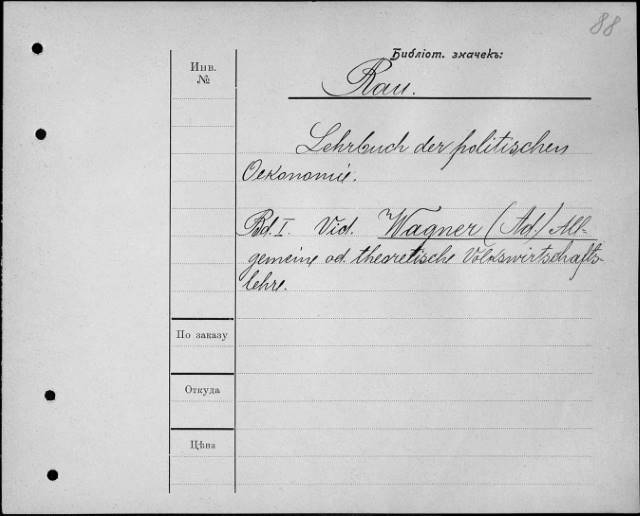 88
Библіот. значекъ:
Инв.
№
Rau.
Lehrbuch der politischen
Oekonomie.
Bd. I. Vid. Wagner (Ad.) All-
gemeine od. theoretische Volkswirtschafts-
lehre.
По заказу
Откуда
Цѣна